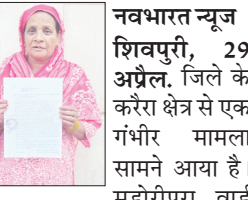 नवभारत न्यूज
शिवपुरी, 29
अप्रैल. जिले के
करैरा क्षेत्र से एक
गंभीर मामला
सामने आया है।